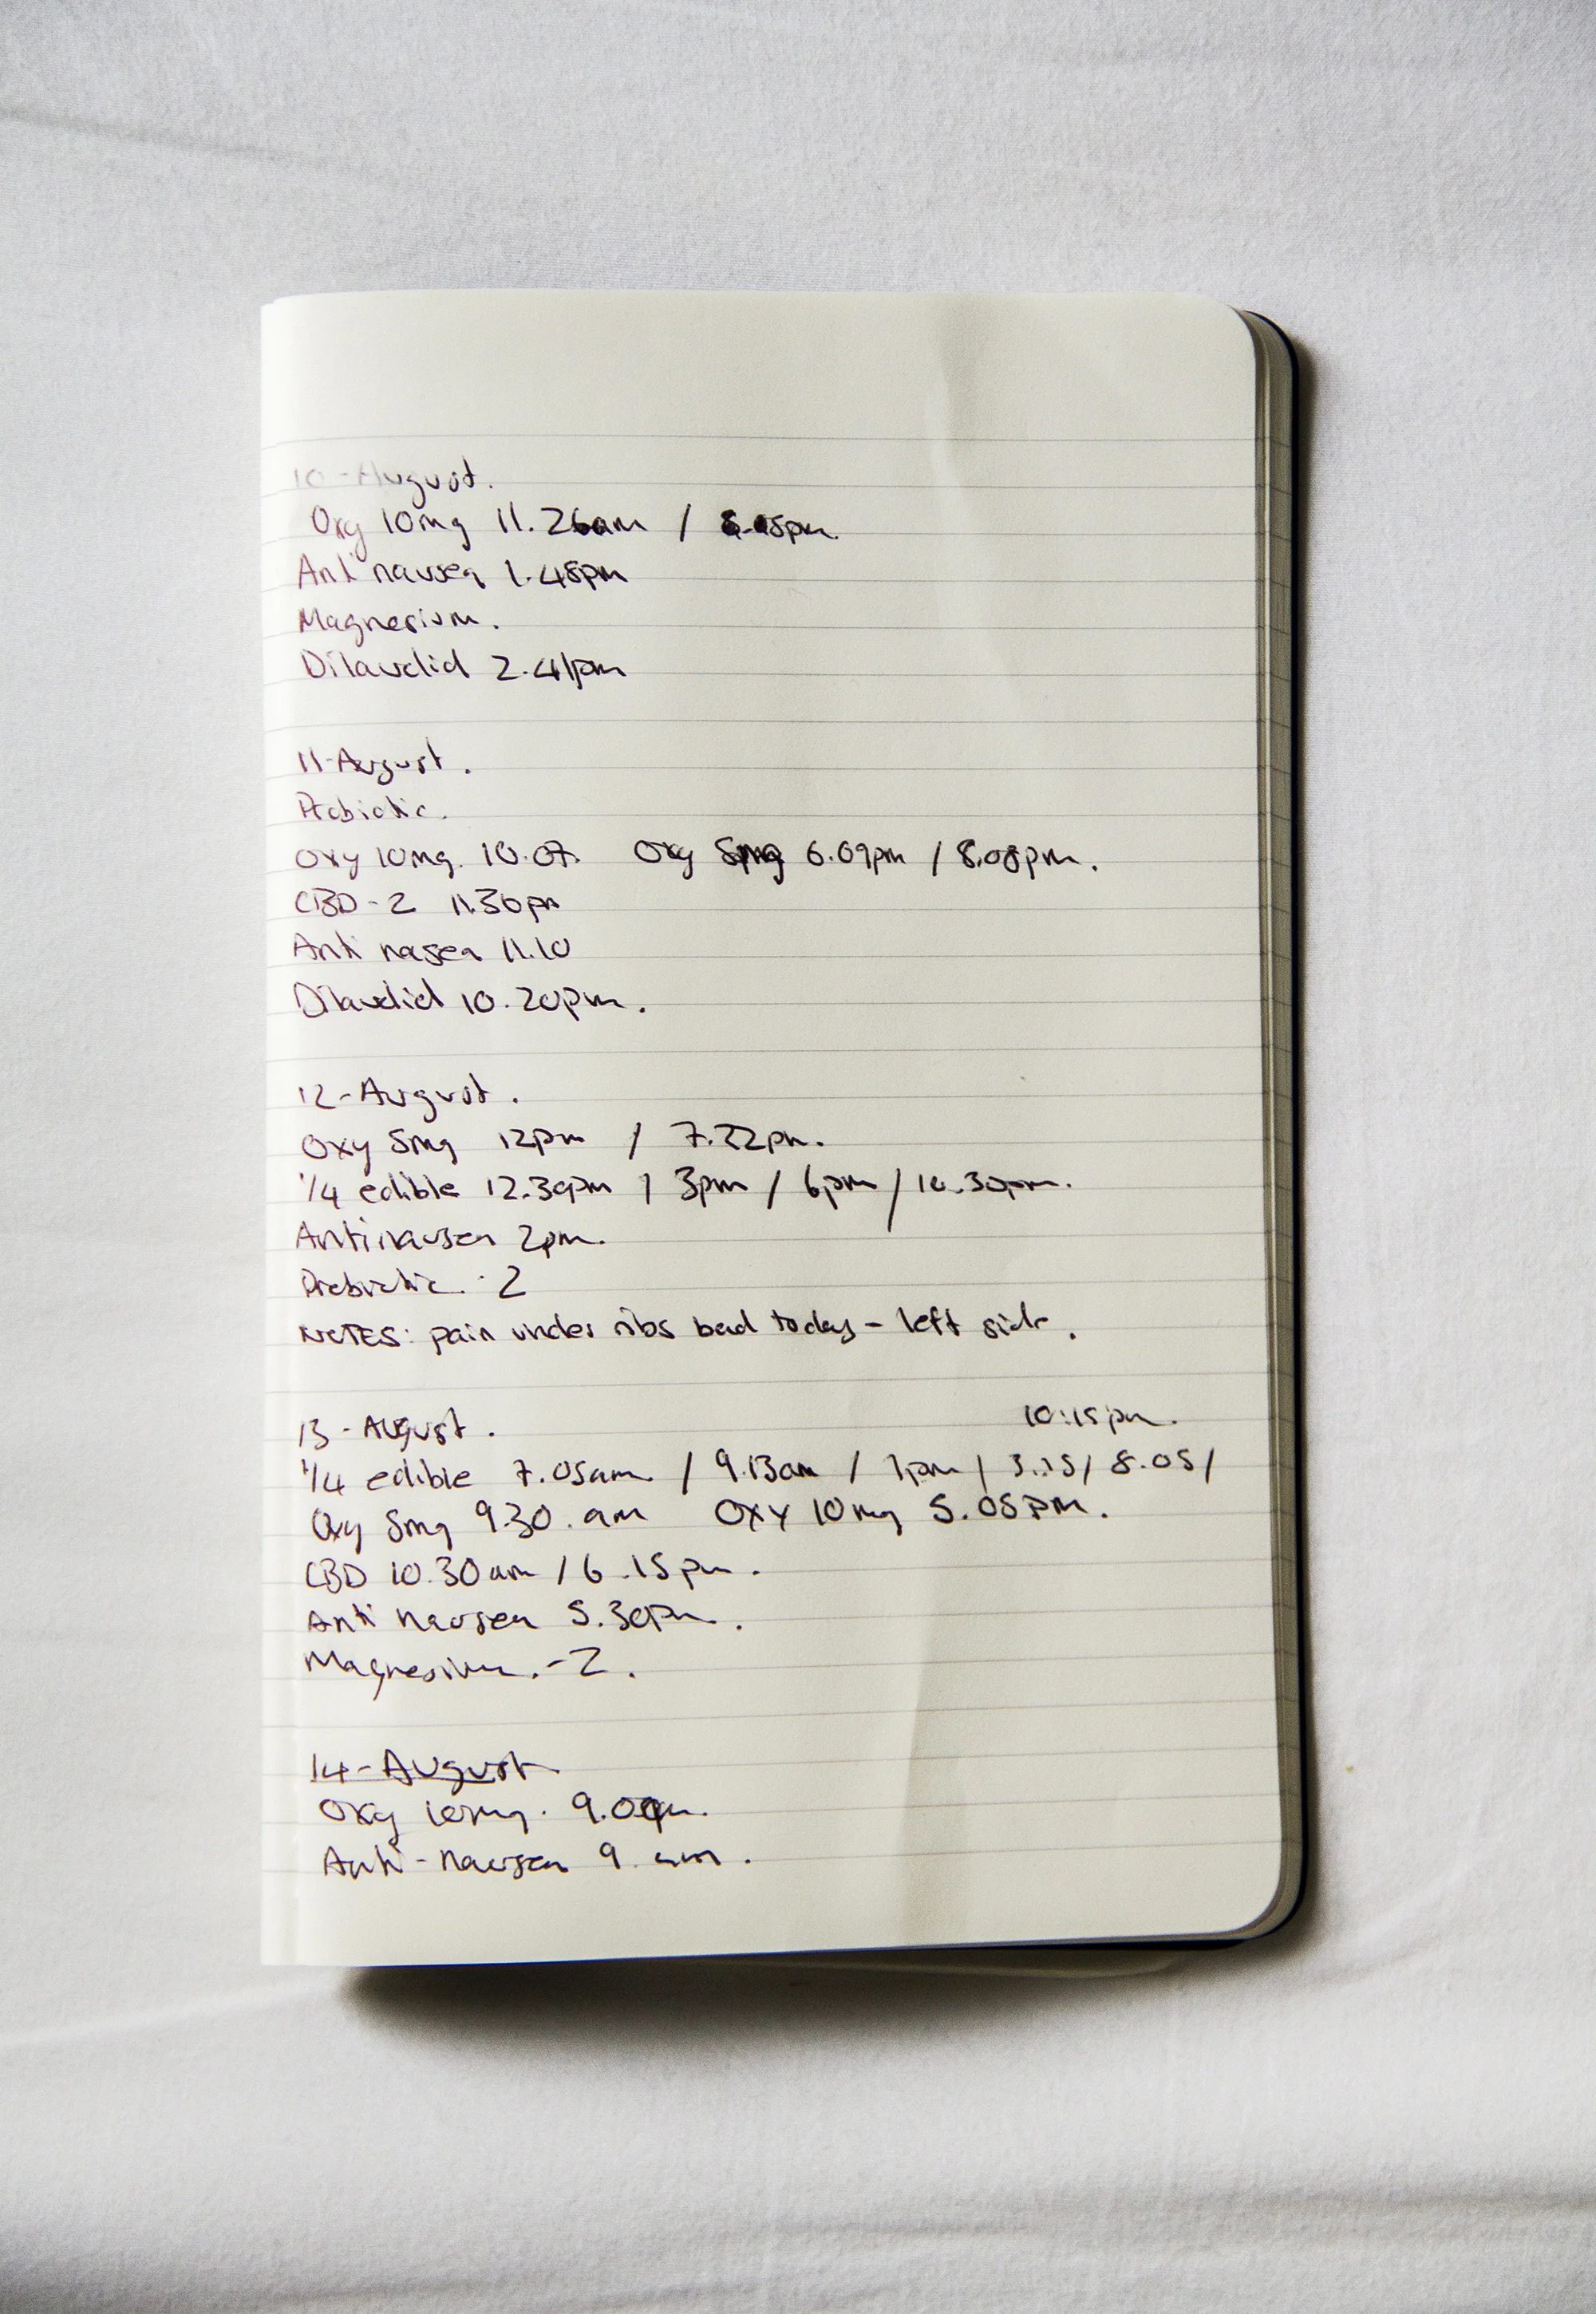 10-August.
Oxy 10mg 11.26am /
Anti nausea 1.45pm
Magnesium.
Dilaudid 2.41pm
11-August.
Probiotic.
Oxy 10mg. 10.07. Oxy 5mg 6.09pm / 8.08pm.
CBD-2 11.30pm
Anti nasea 11.10
Dilaudid 10.20pm.
12-August.
Oxy 5mg 12pm / 7.22pm.
1/4 edible 12.30pm / 3pm / 6pm / 10.30pm.
Antinausea 2pm.
Probiotic - 2
NOTES: pain under ribs bad today - left side.
13-August.
10:15pm.
1/4 edible 7.05am / 9.13am / 1pm / 3.15 / 8.05 /
Oxy 5mg 9.30.am Oxy 10mg 5.05pm.
CBD 10.30am / 6.15pm.
Anti nausea 5.30pm.
Magnesium.-2.
14-August
Oxy 10mg.
Anti-nausea 9 am.